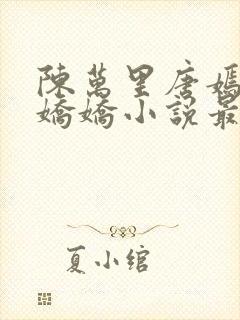 陳萬里唐嫣
嬌嬌小說最
夏小綰